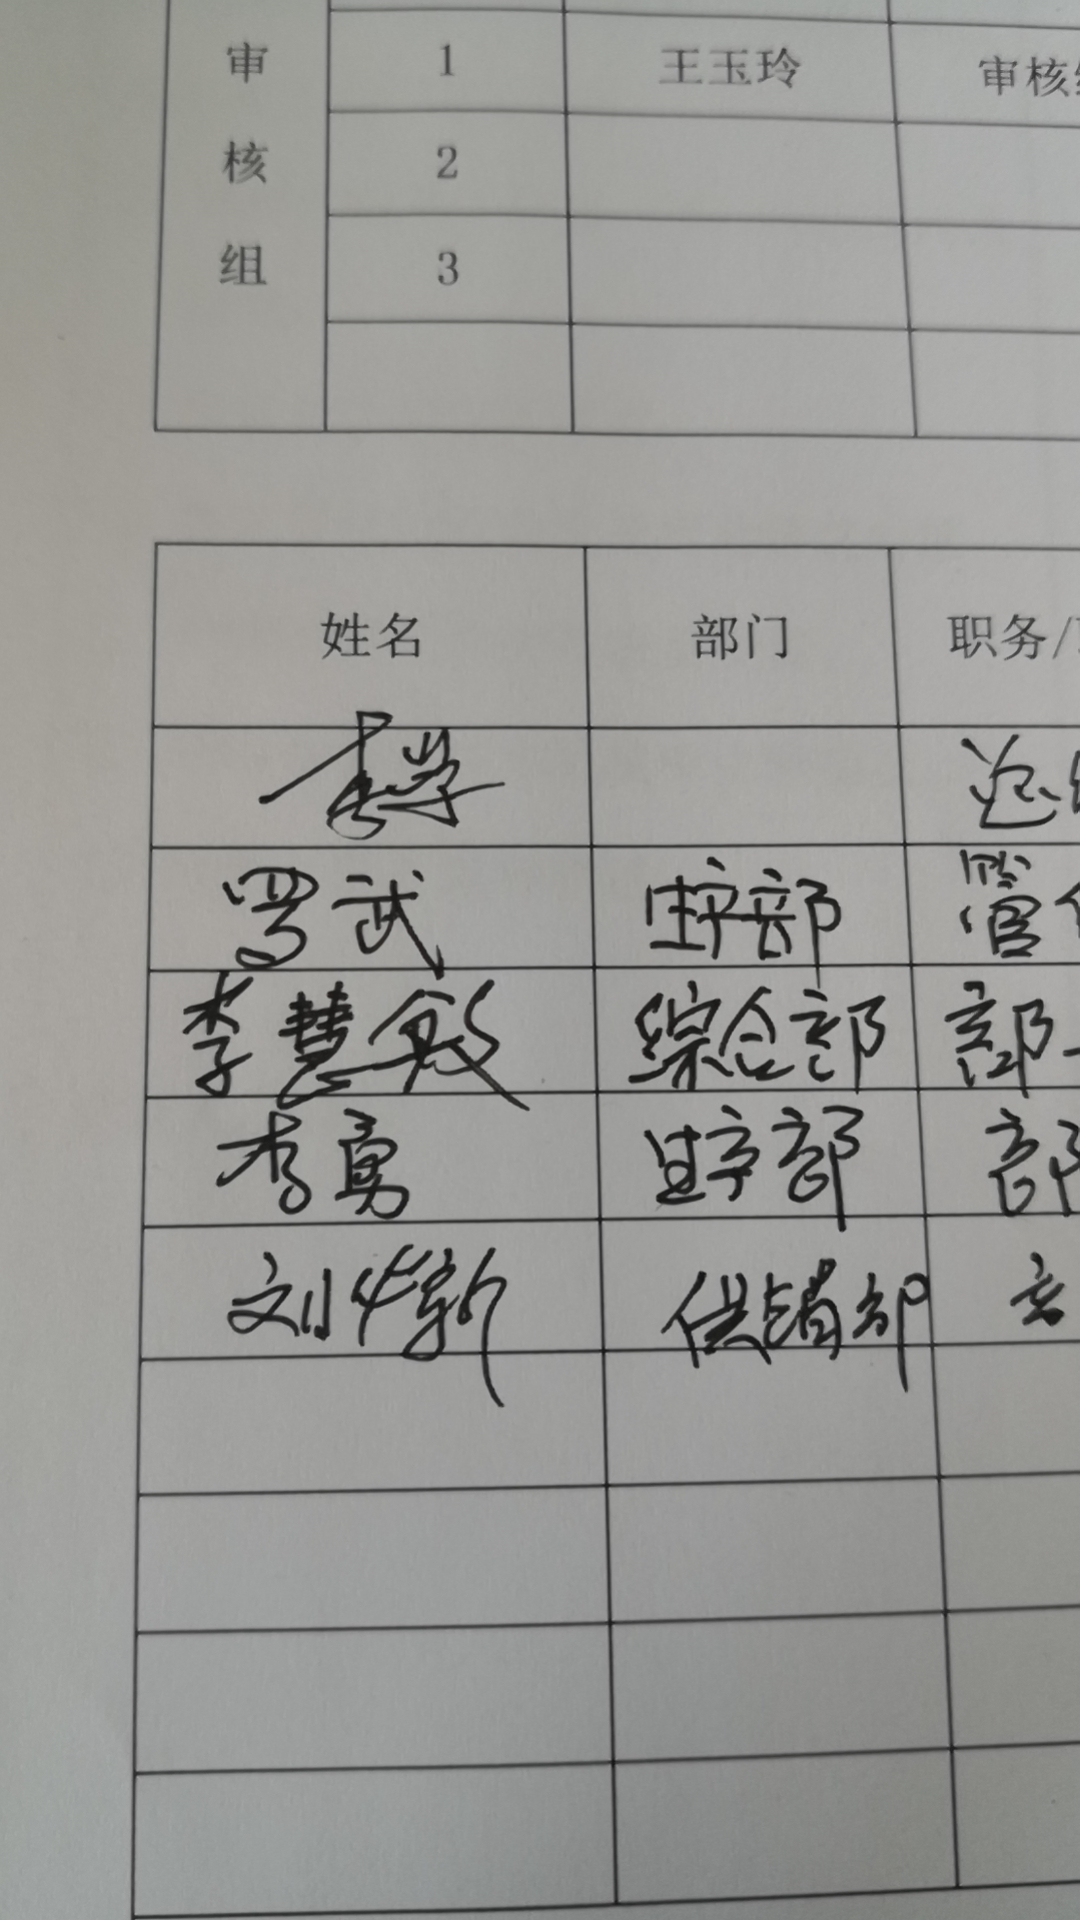 审 1 王玉玲 审核
核 2
组 3
姓名 部门 职务/
李 总
罗武 生产部 管
李慧敏 综合部 部
李勇 生产部 部
刘华新 供销部